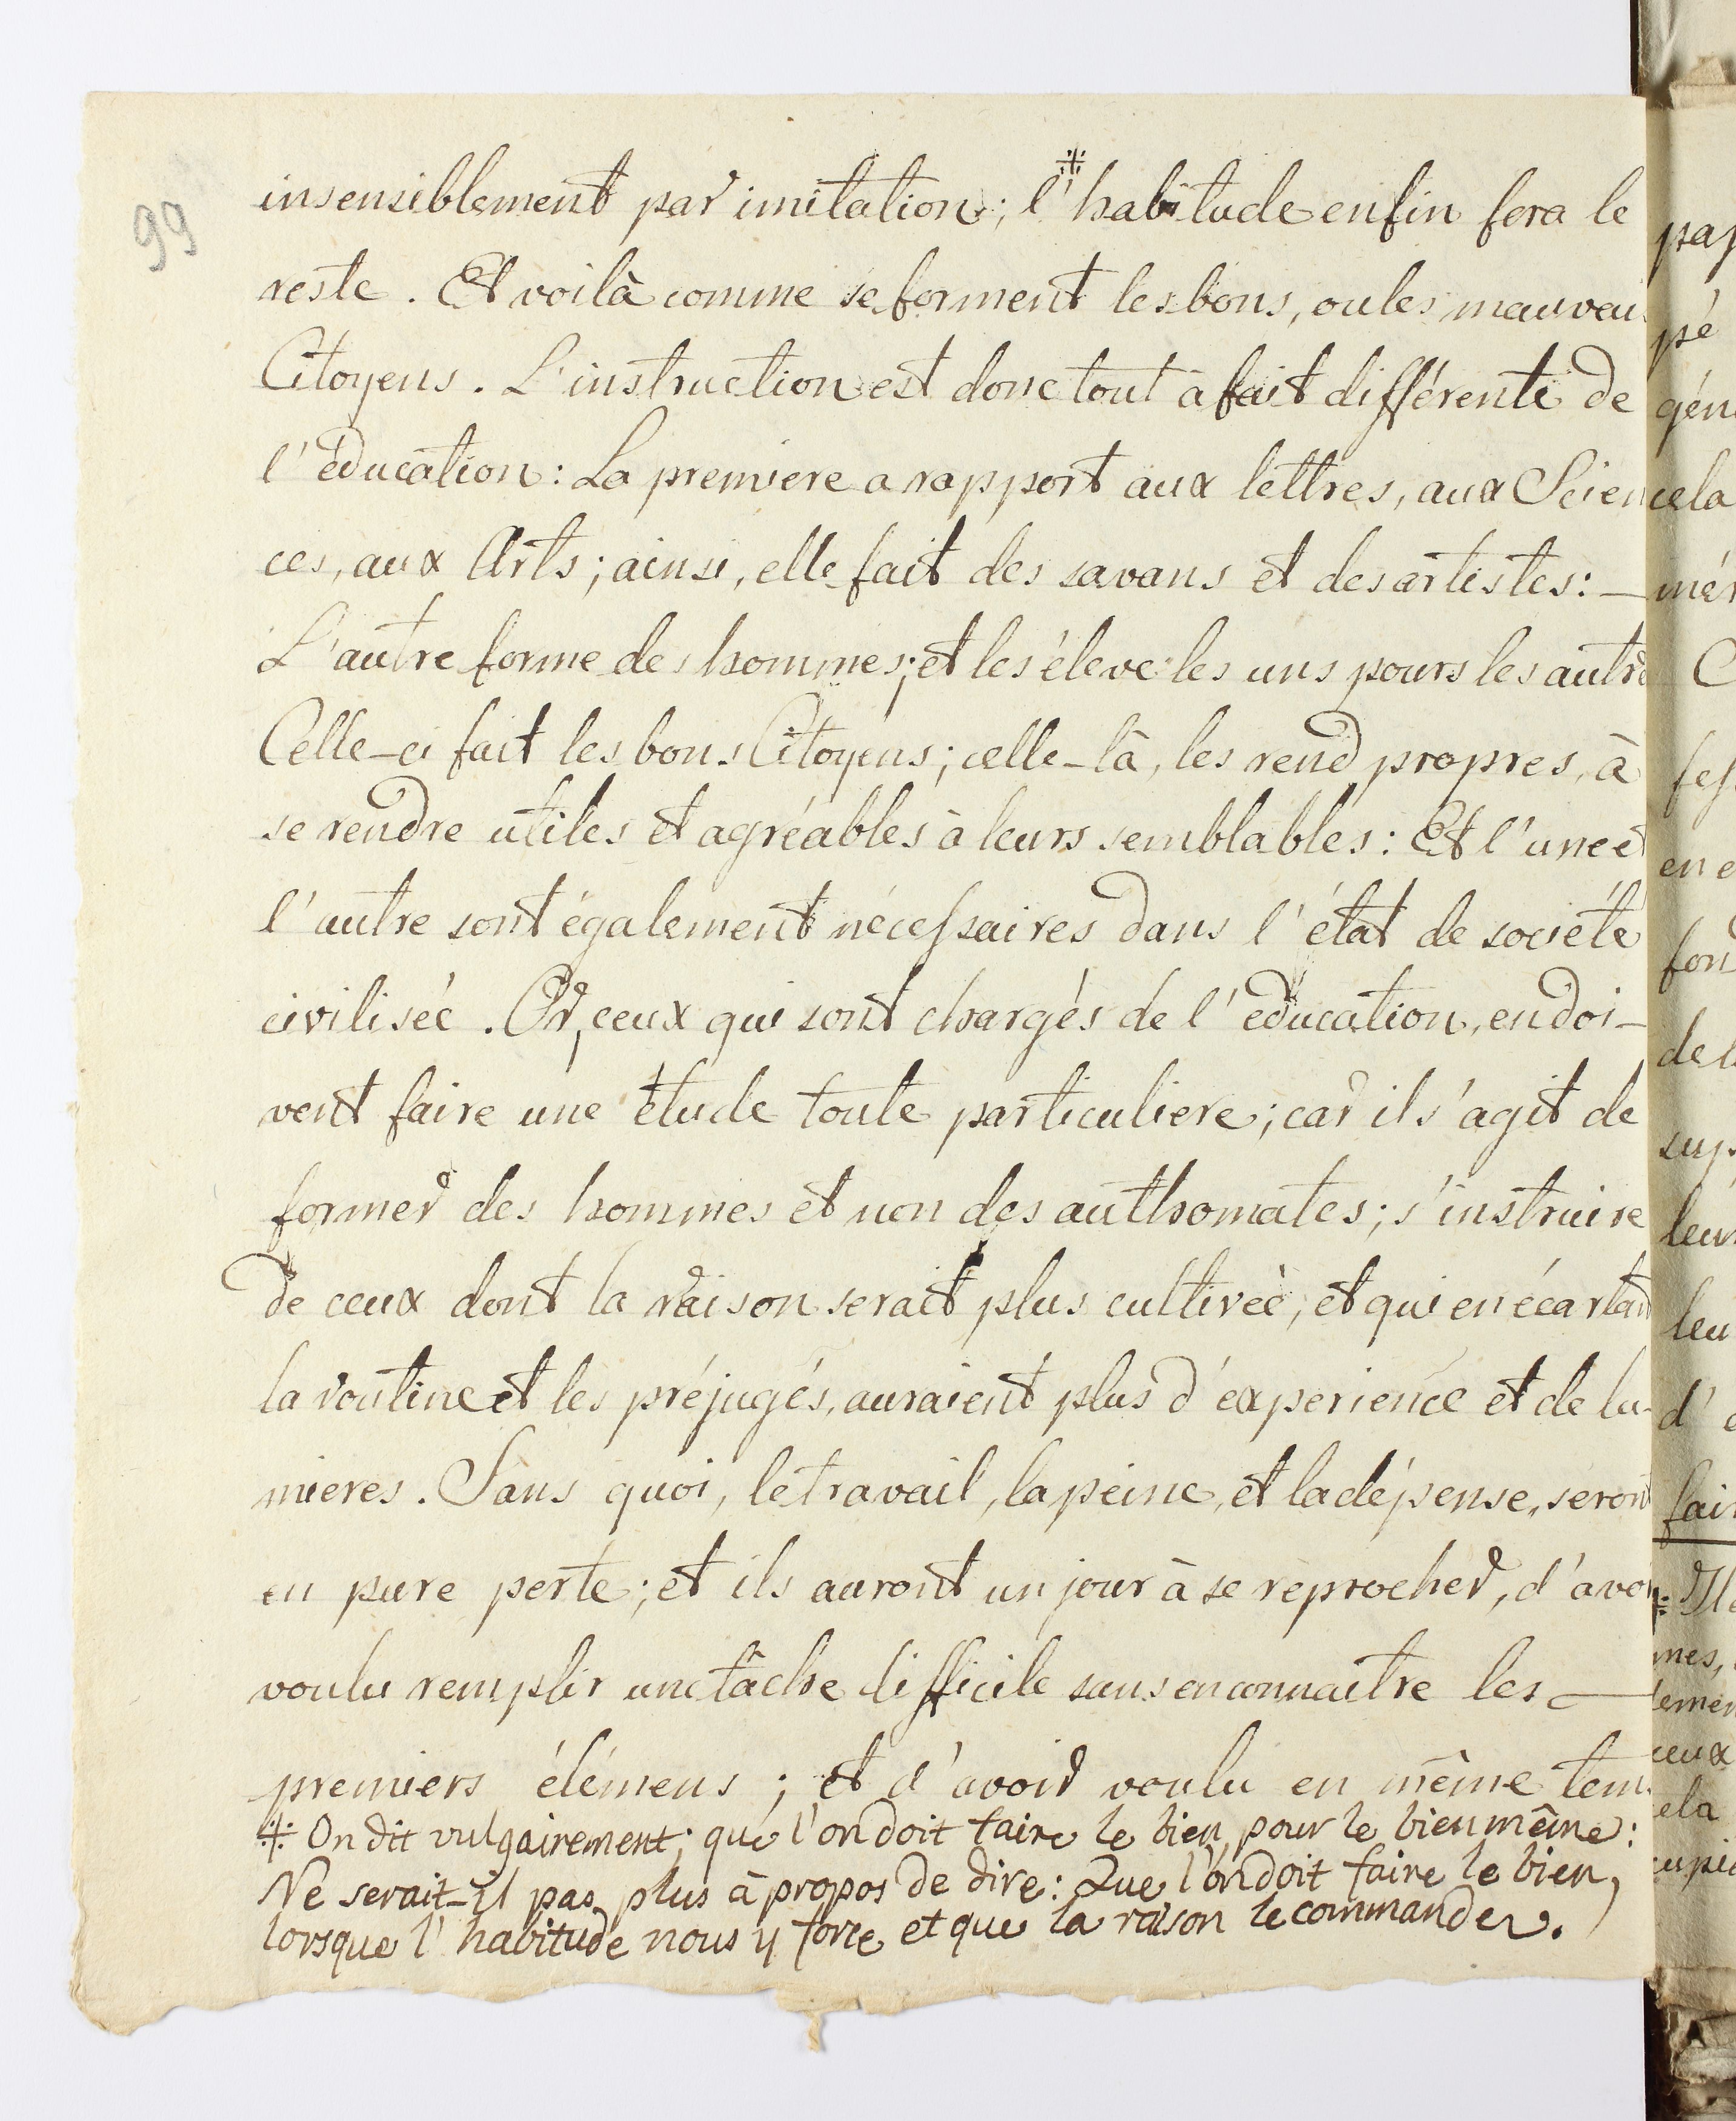 99
insensiblement par imitation; l'※habitude enfin fera le
reste. Et voilà comme se forment les bons, ou les mauvai
Citoyens. L'instruction est donc tout à fait différente de
l'éducation: La premiere a rapport aux lettres, aux Scien
ces, aux Arts; ainsi, elle fait des savans et des artistes: —
L'autre forme des hommes; et les éleve les uns pours les autre
Celle-ci fait les bons Citoyens; celle-là, les rend propres, à
se rendre utiles et agréables à leurs semblables: Et l'une et
l'autre sont également nécessaires dans l'état de société
civilisée. Or, ceux qui sont chargés de l'éducation, en doi-
vent faire une étude toute particuliere; car il s'agit de
former des hommes et non des authomates; s'instruire
de ceux dont la raison serait plus cultivée, et qui en écartant
la routine et les préjugés, auraient plus d'experience et de lu-
mieres. Sans quoi, le travail, la peine, et la dépense, seront
en pure perte; et ils auront un jour à se reprocher, d'avoi
voulu remplir une tâche difficile sans en connaitre les —
premiers élémens; et d'avoir voulu en même tem
※ On dit vulgairement; que l'on doit faire le bien pour le bien même:
Ne serait-il pas plus à propos de dire: Que l'on doit faire le bien,
lorsque l'habitude nous y force et que la raison le commande.
pap
pé
géné
cela
mér
C
fes
en e
fond
de l
sup
leur
leu
d'e
fair
※ Il
mes,
lemen
ceux
ela
cupi